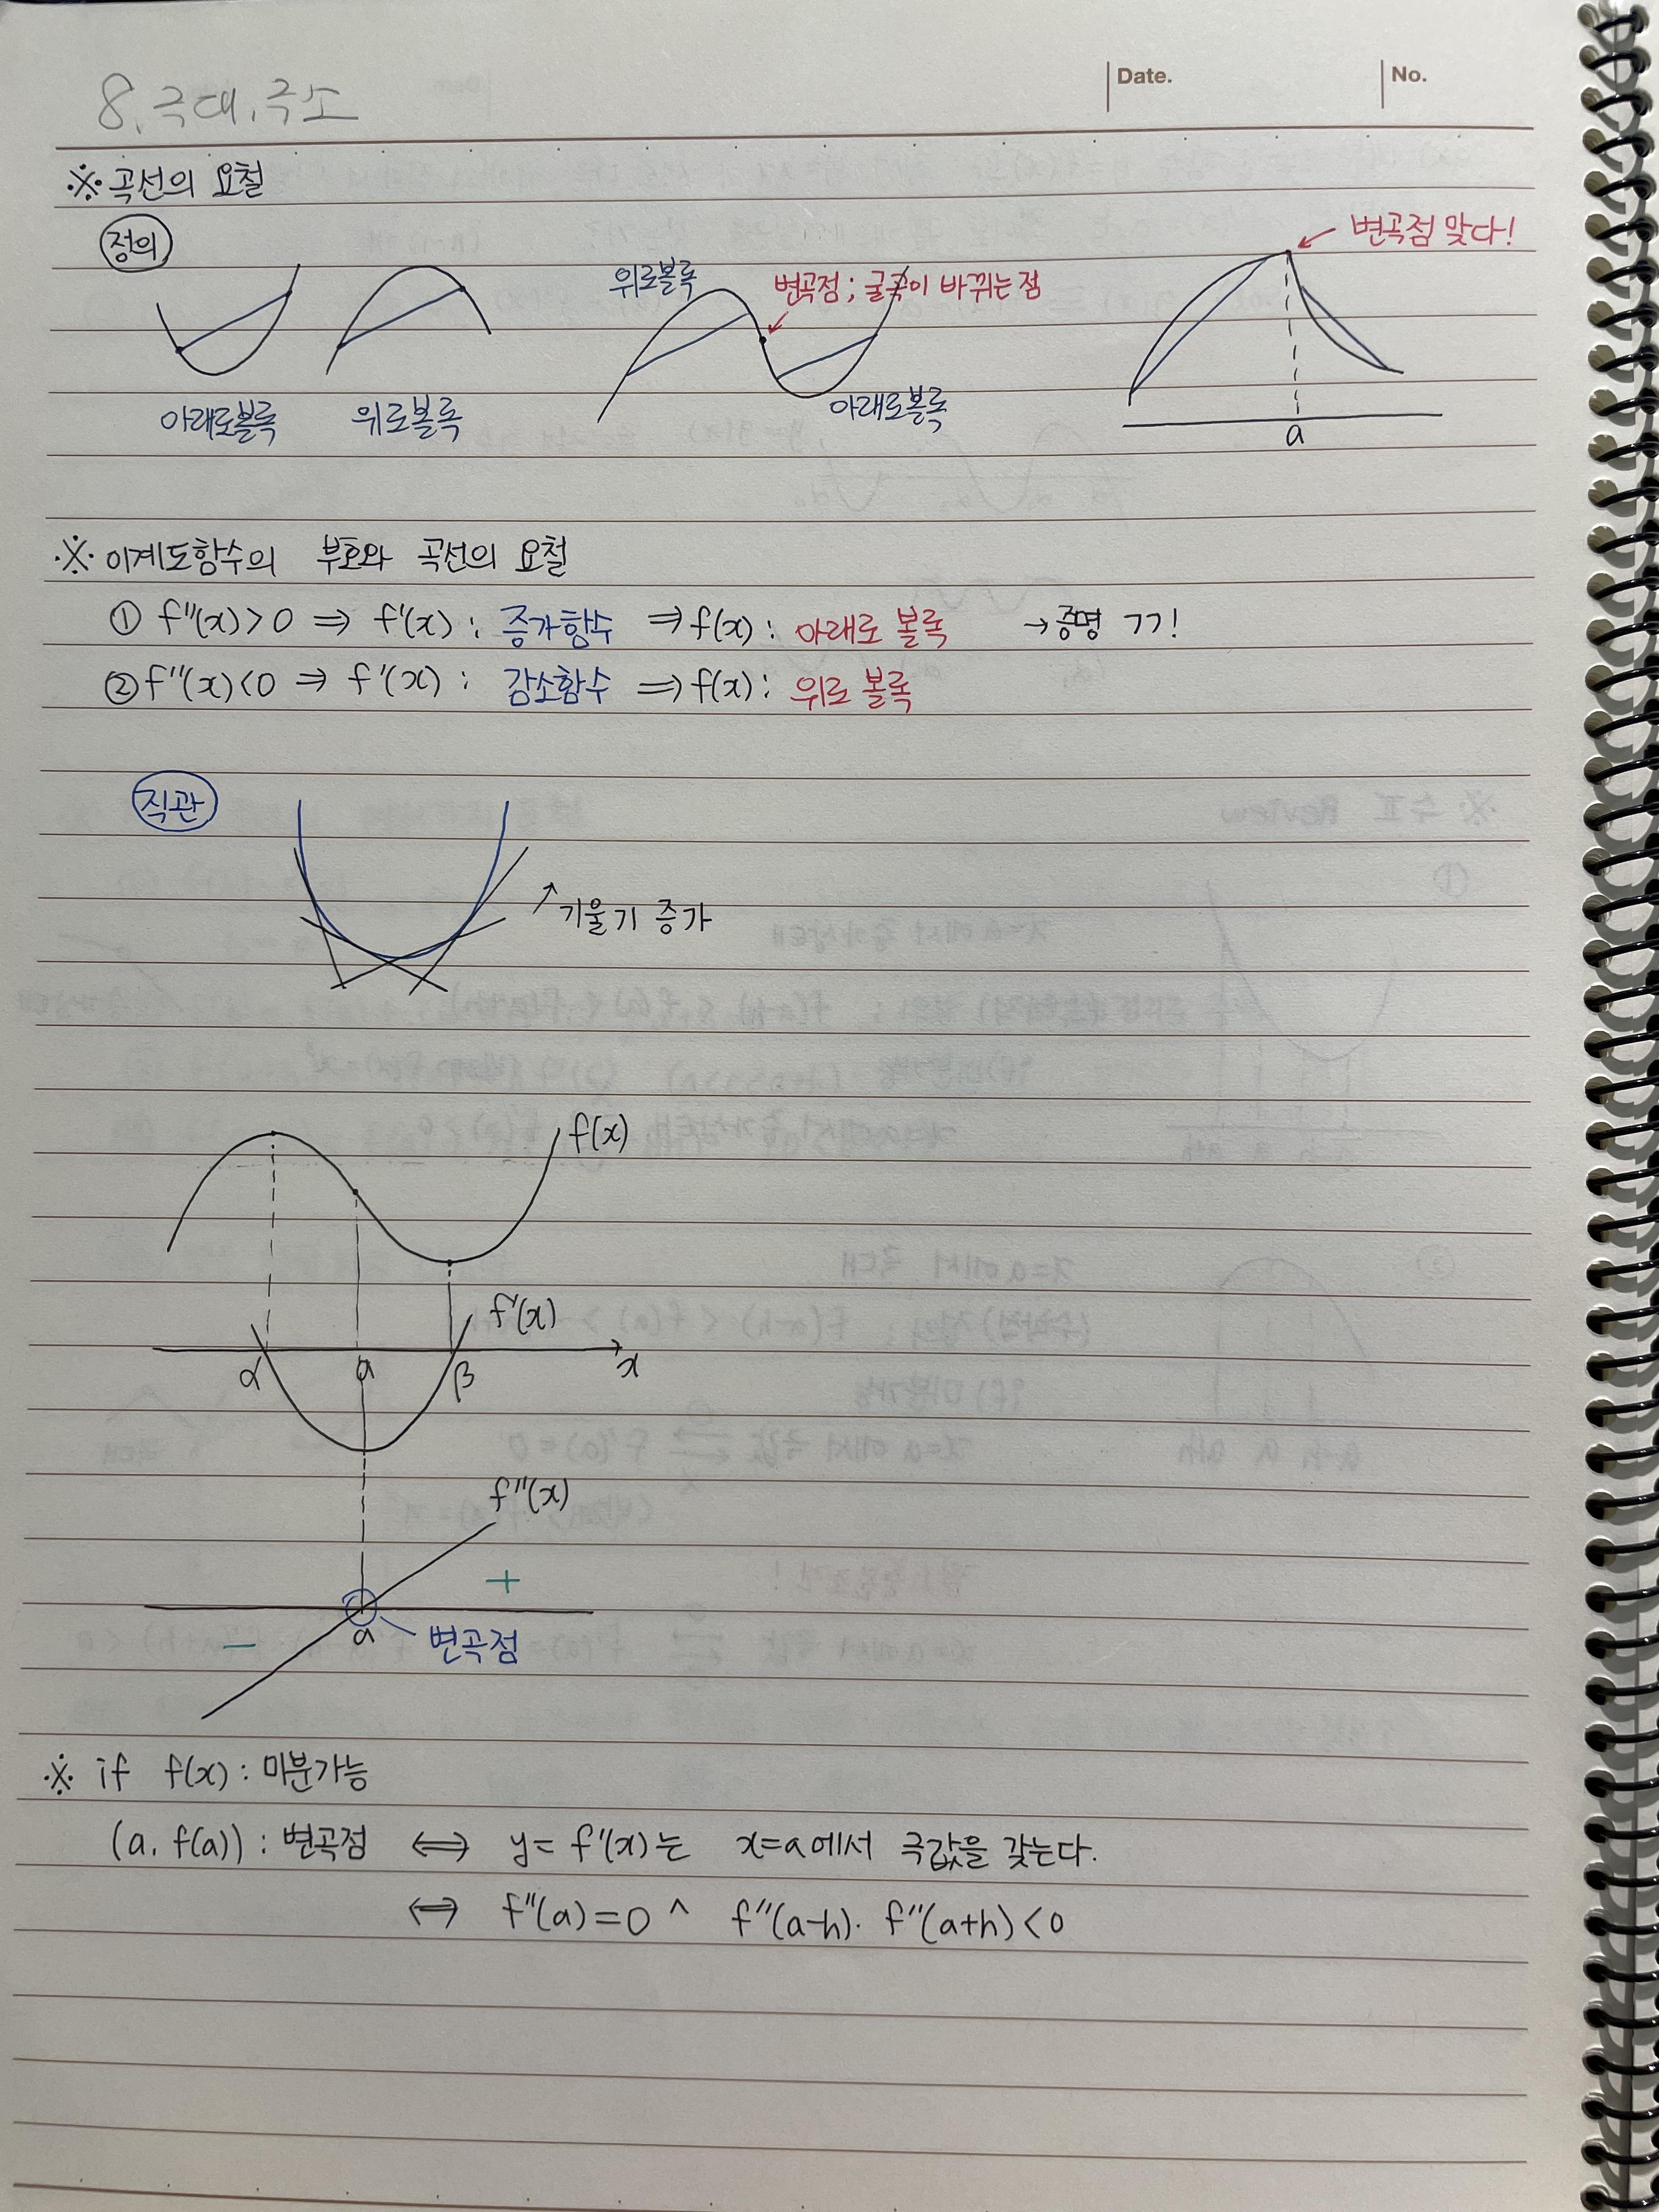 8. 극대, 극소
Date.
No.
※ 곡선의 요철
정의
변곡점 맞다!
위로볼록
변곡점; 굴곡이 바뀌는 점
아래로볼록
위로볼록
아래로볼록
a
※ 이계도함수의 부호와 곡선의 요철
① f''(x)>0 ⇒ f'(x) : 증가함수 ⇒ f(x) : 아래로 볼록 → 증명 ㄱㄱ!
② f''(x)<0 ⇒ f'(x) : 감소함수 ⇒ f(x) : 위로 볼록
직관
↗ 기울기 증가
f(x)
f'(x)
α a β x
f''(x)
+
−
a
변곡점
※ if f(x) : 미분가능
(a, f(a)) : 변곡점 ⇔ y = f'(x)는 x=a에서 극값을 갖는다.
⇔ f''(a)=0 ^ f''(a-h)· f''(a+h)<0